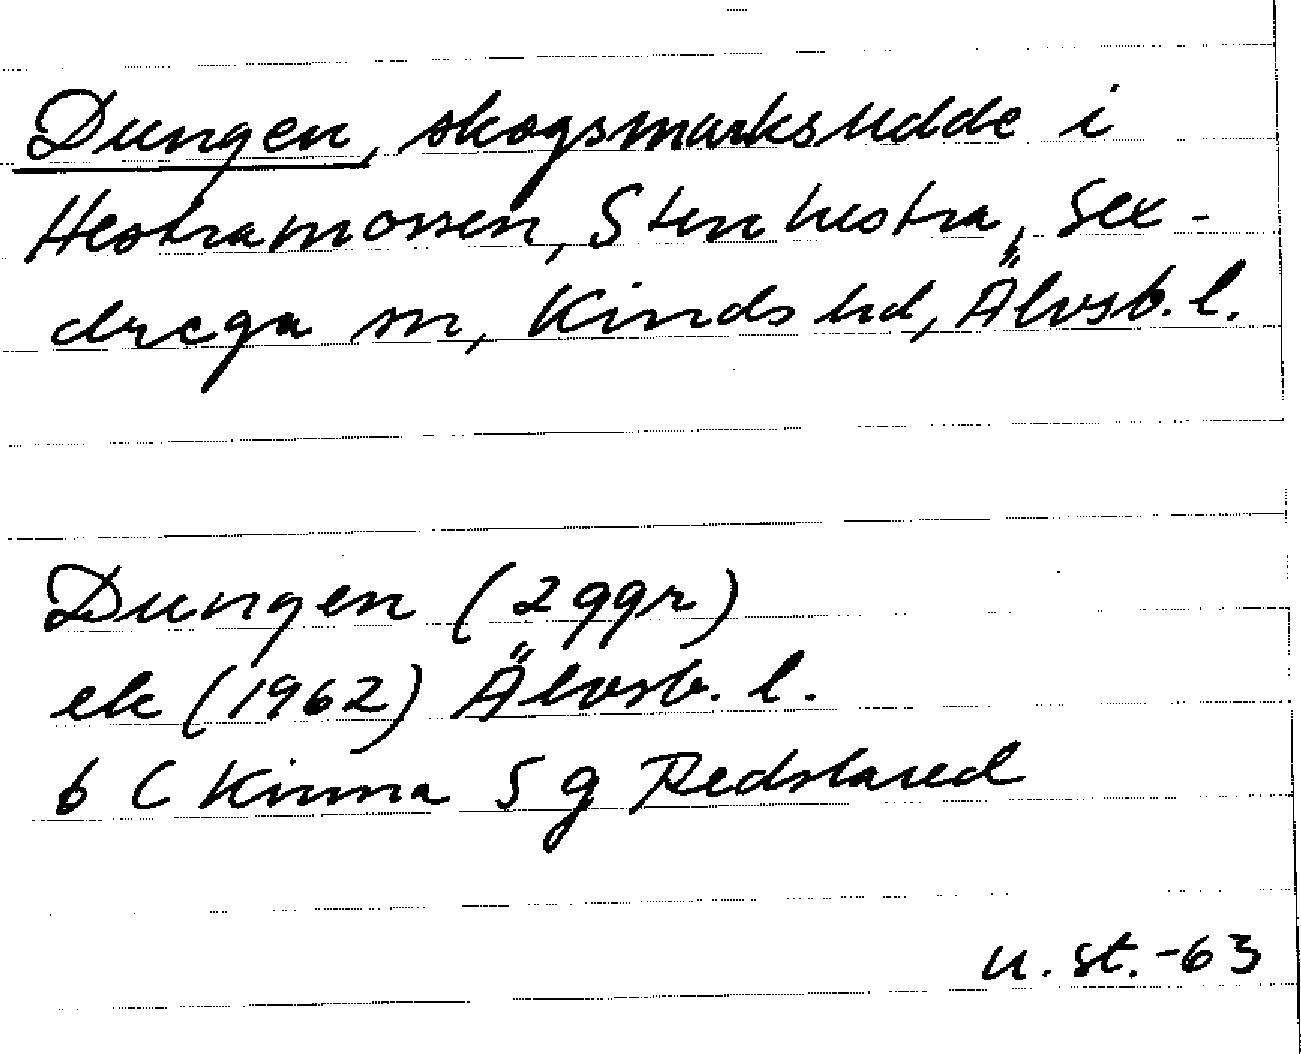 Dungen, skogsmarksudde i
Hestramossen, Stenhestra, Sex-
drega sn, Kinds hd, Älvsb. l.
Dungen (2 ggr)
ek (1962) Älvsb. l.
6 C Kinna S g Redslared
u. st. -63